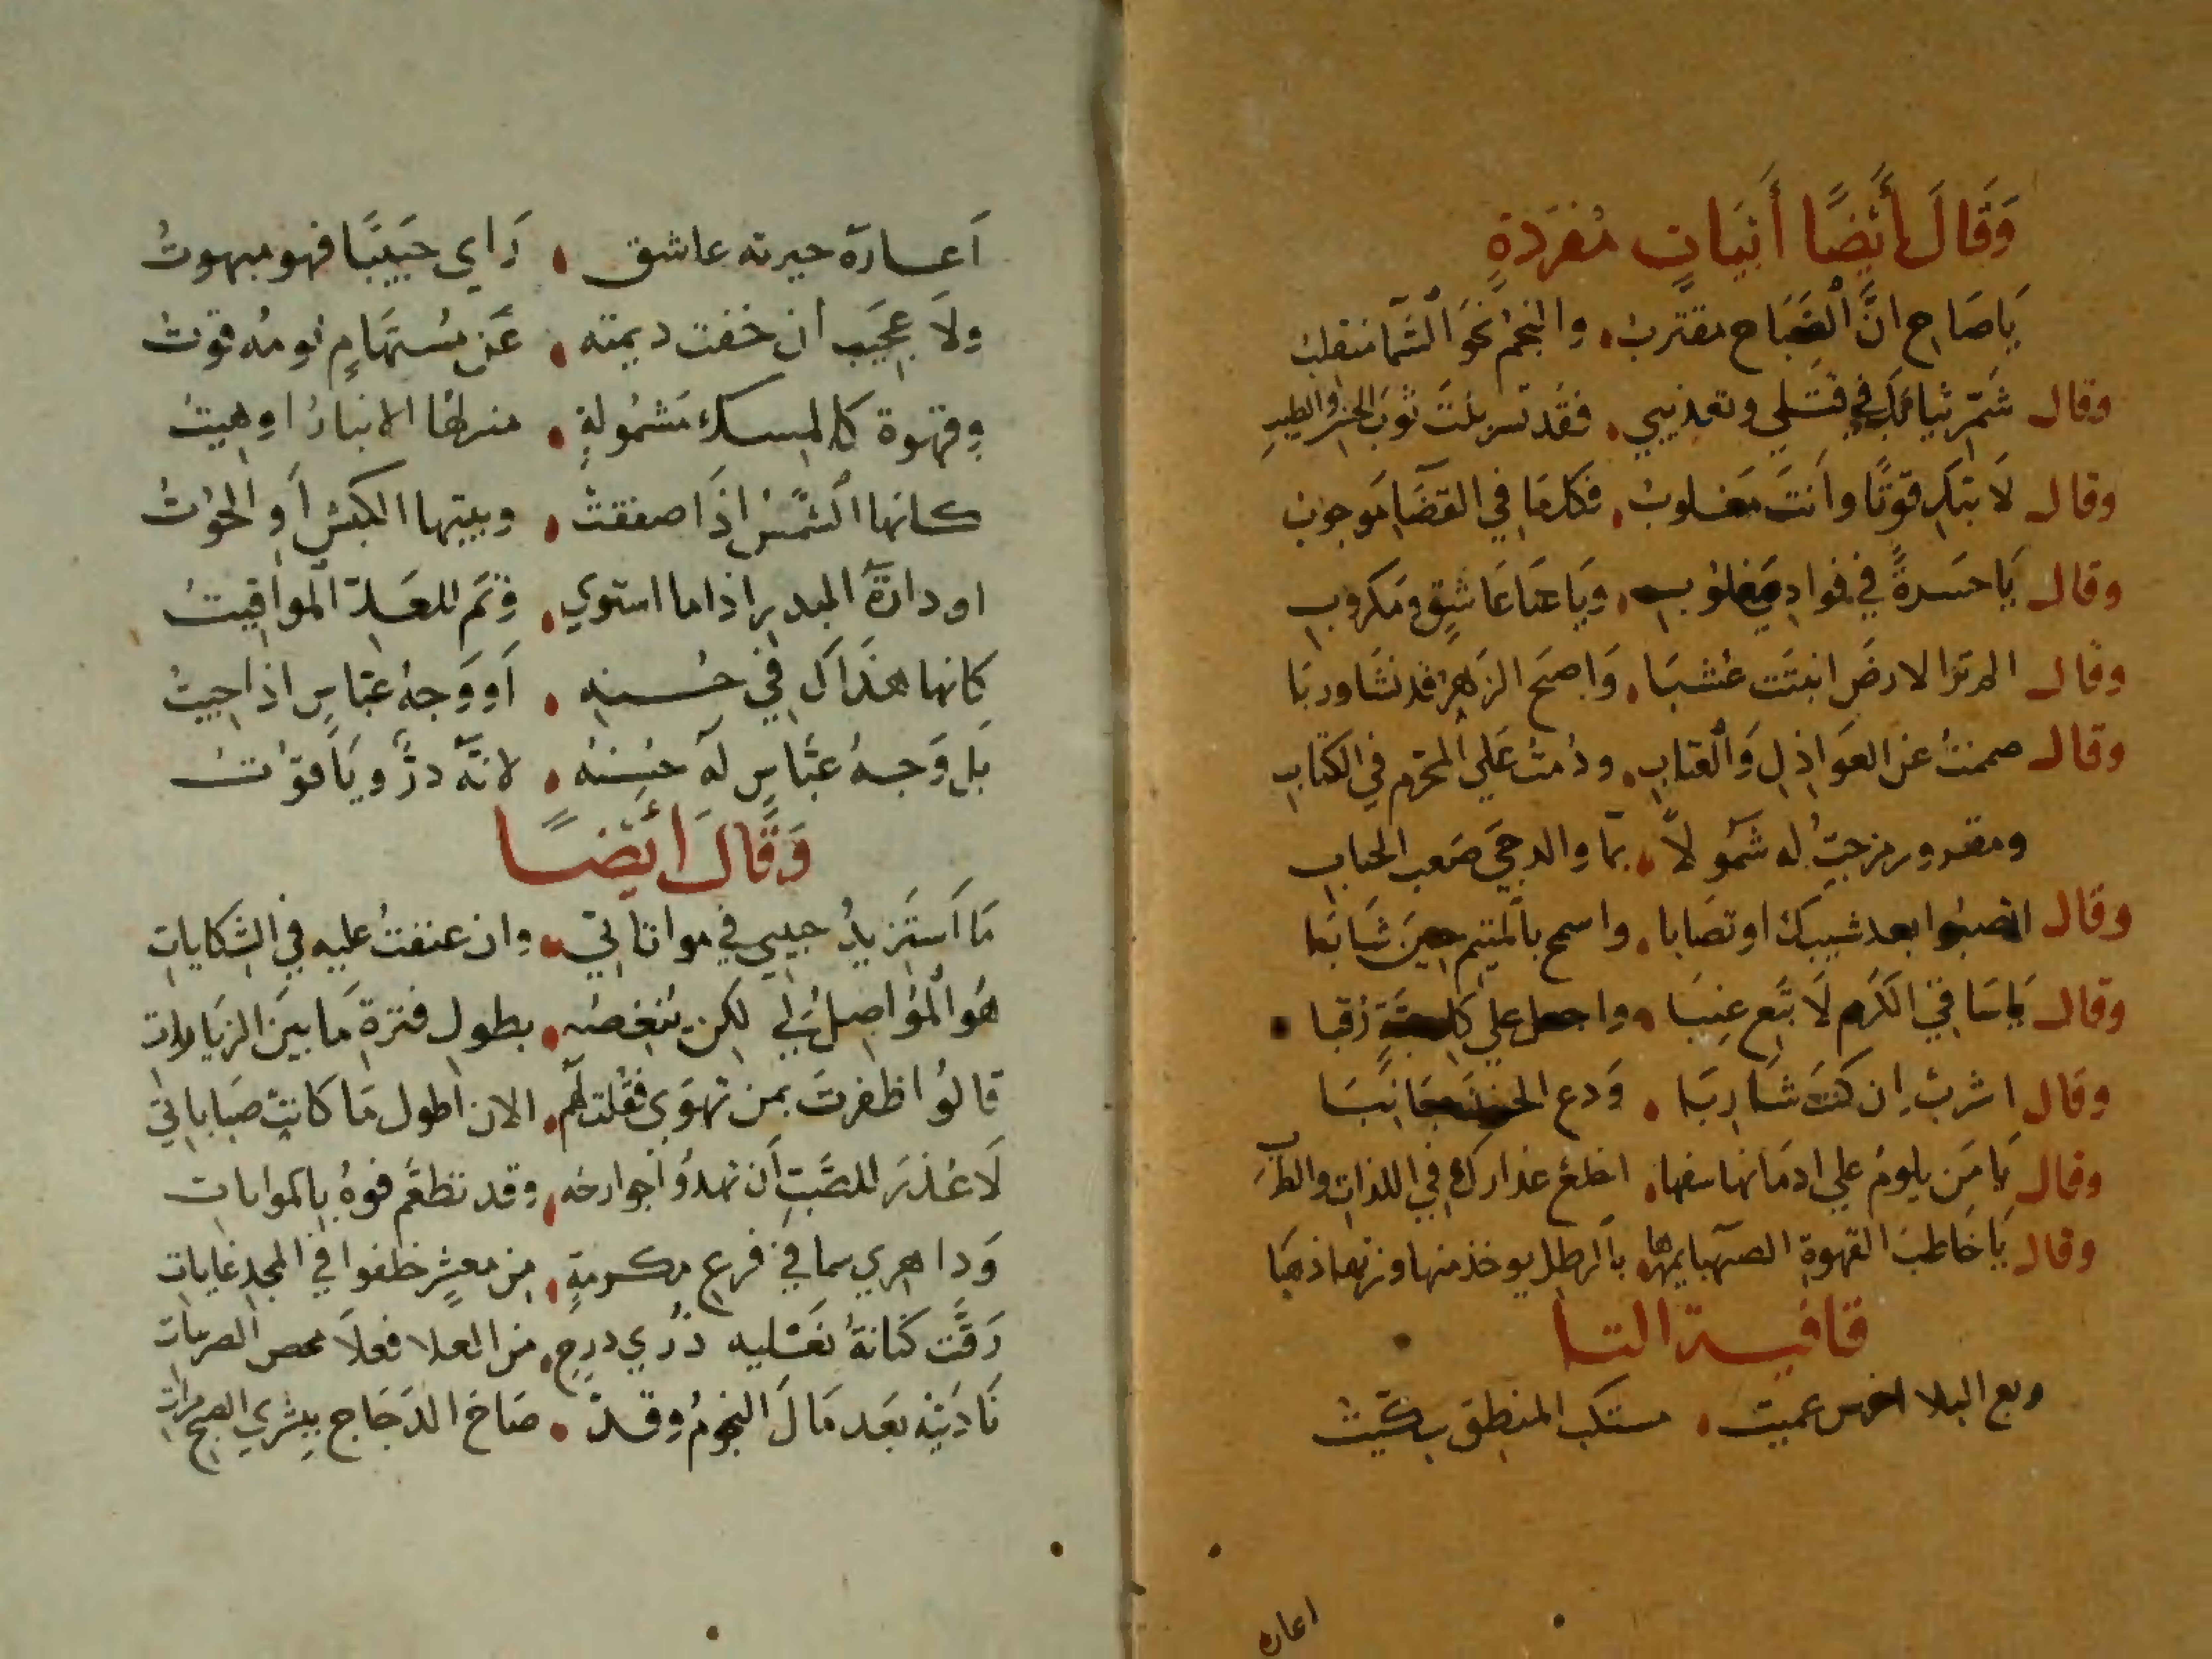 وَقَالَ أَيْضًا أَبْيَاتٍ مُفْرَدَةٍ
يَا صَاحِ انَّ الصَّبَاح مقترب والنجم نَحْوَ السَّمَا منقلب
وقال شَمّر ثيابك في قتلي وتعذيبي فقد تسربلتَ ثوبَ الحسن والطيبِ
وقال لَا تبكِ فوتًا وانتَ مغلوب فكلما في القضَا موجوب
وقال يَا حَسرةً في فوادي مغلوب وَيَا عاشق ومكروب
وقال الم تر الارضَ انبتَت عُشبَا وَاصبَح الزهر قد
وقال صممتُ عن العوَاذل وَالعتاب ودُمتُ عَلي المحرّم في الكتاب
ومقرور مزجتُ له شَمُولًا بما والدجي صَعب الجناب
وقال بعد شيبك او تصابا واسمح بالمتيم حين شَابَا
وقال يا سَاقي الكَرمِ لَا تبَع عِنبَا واجعل علي كل حبّةٍ رُقبا
وقال اشرب ان كنتَ شَاربَا وَدع الحزن جَانبَا
وقال يَا مَن يلومُ علي ادمانها سفها اخلع عذارك في اللذات
وقال يَا خَاطبَ القهوة الصهبا يمهرها بالرطل يوخذ منها وزنها ذهبَا
قافيــة التــا
ربع البلا اخرس عميت مستلب المنطق سكّيتُ
اعاره
اَعــارَه حيرته عاشق رَاي حَبيبًا فهو مبهوتُ
ولَا عجَيب ان خفت ديمته عَن مُستهَامٍ نومُه قوتُ
وقهوة كالمسك مَشمُولةٍ منزلها الانبارُ او هيتُ
كانها الشّمسُ اذَا صفقتْ وبيتها الكبش اَو الحُوتُ
او دارةُ البدر اذا ما استوي وَتَم للعَدّ المَواقيتُ
كَانها هذَاك في حُســنه اَو وَجهُ عبّاس اذا جيتُ
بَل وَجهُ عبَّاس لَه حُسنهُ لانّه درٌّ وَيَاقوتُ
وَقَالَ أَيْضــًا
مَا اَستَزيدُ حبيبي في مواتاتي وان عنفتُ عليه في الشكايات
هُوَ الْمُوَاصلُ لي لكن يُنغصُه بطول فترة مَا بينَ الزيَارات
قالُوا ظفرتَ بمن تهوَي فقلت لهم الان اطول مَا كانت صبَاباتي
لَا عُذرَ للصَّبِ اَن تهدُو اجوارحُه وقد تطعَّم فوهُ بالمواتات
وَدا هري سما في فرع مكــرمةٍ من معشرٍ خلفوا في المجد غايات
نَاديته بعَد مَا مَالَ النجومُ وقــد صَاحَ الدَجَاج ببشري الصبح مرات